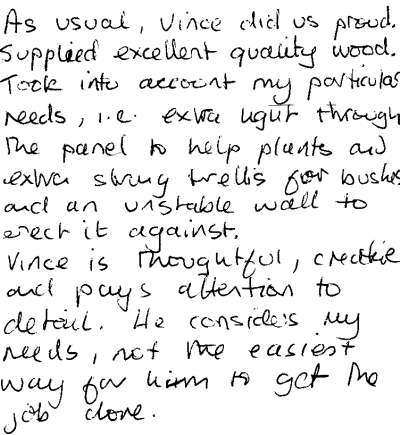 As usual, Vince did us proud.
Supplied excellent quality wood.
Took into account my particular
needs, i.e. extra light through
the panel to help plants and
extra strong trellis for bushes
and an unstable wall to
erect it against.
Vince is thoughtful, creative
and pays attention to
detail. He considers my
needs, not the easiest
way for him to get the
job done.